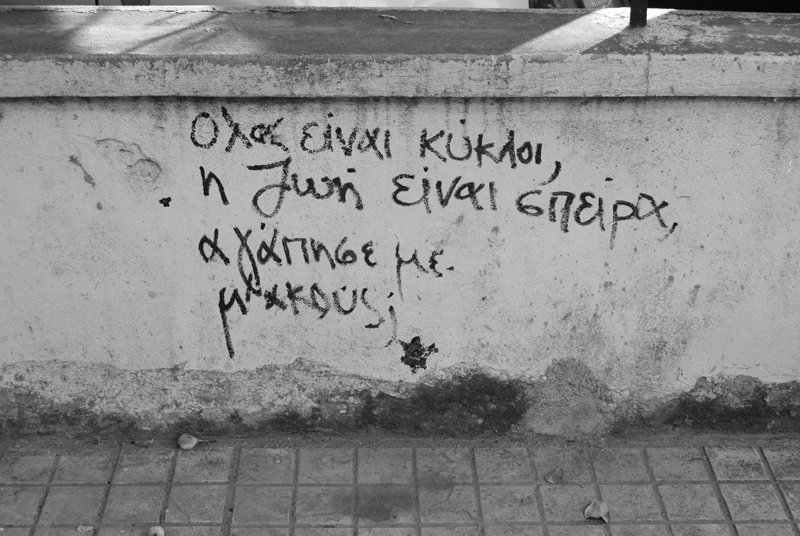 Ολα είναι κύκλοι,
η ζωή είναι σπείρα,
αγάπησε με.
μ'ακούς;